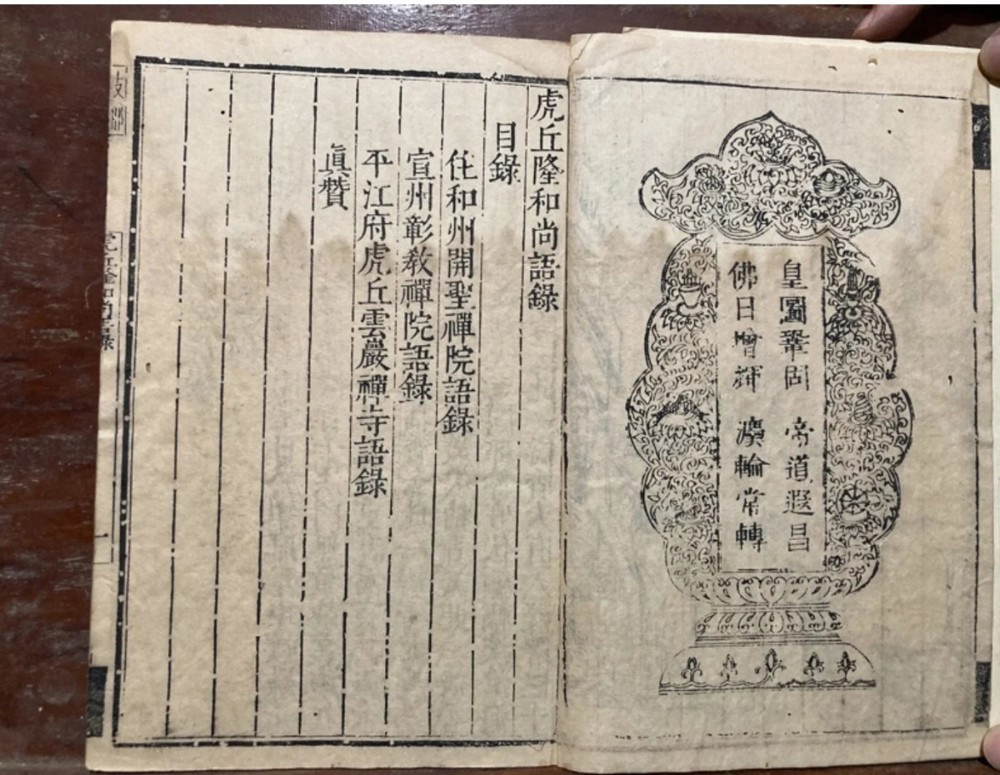 皇圖鞏固 帝道遐昌
佛日增輝 灋輪常轉
虎丘隆和尚語錄
目錄
住和州開聖禪院語錄
宣州彰教禪院語錄
平江府虎丘雲巖禪寺語錄
眞贊
虎丘隆和尚語錄
一